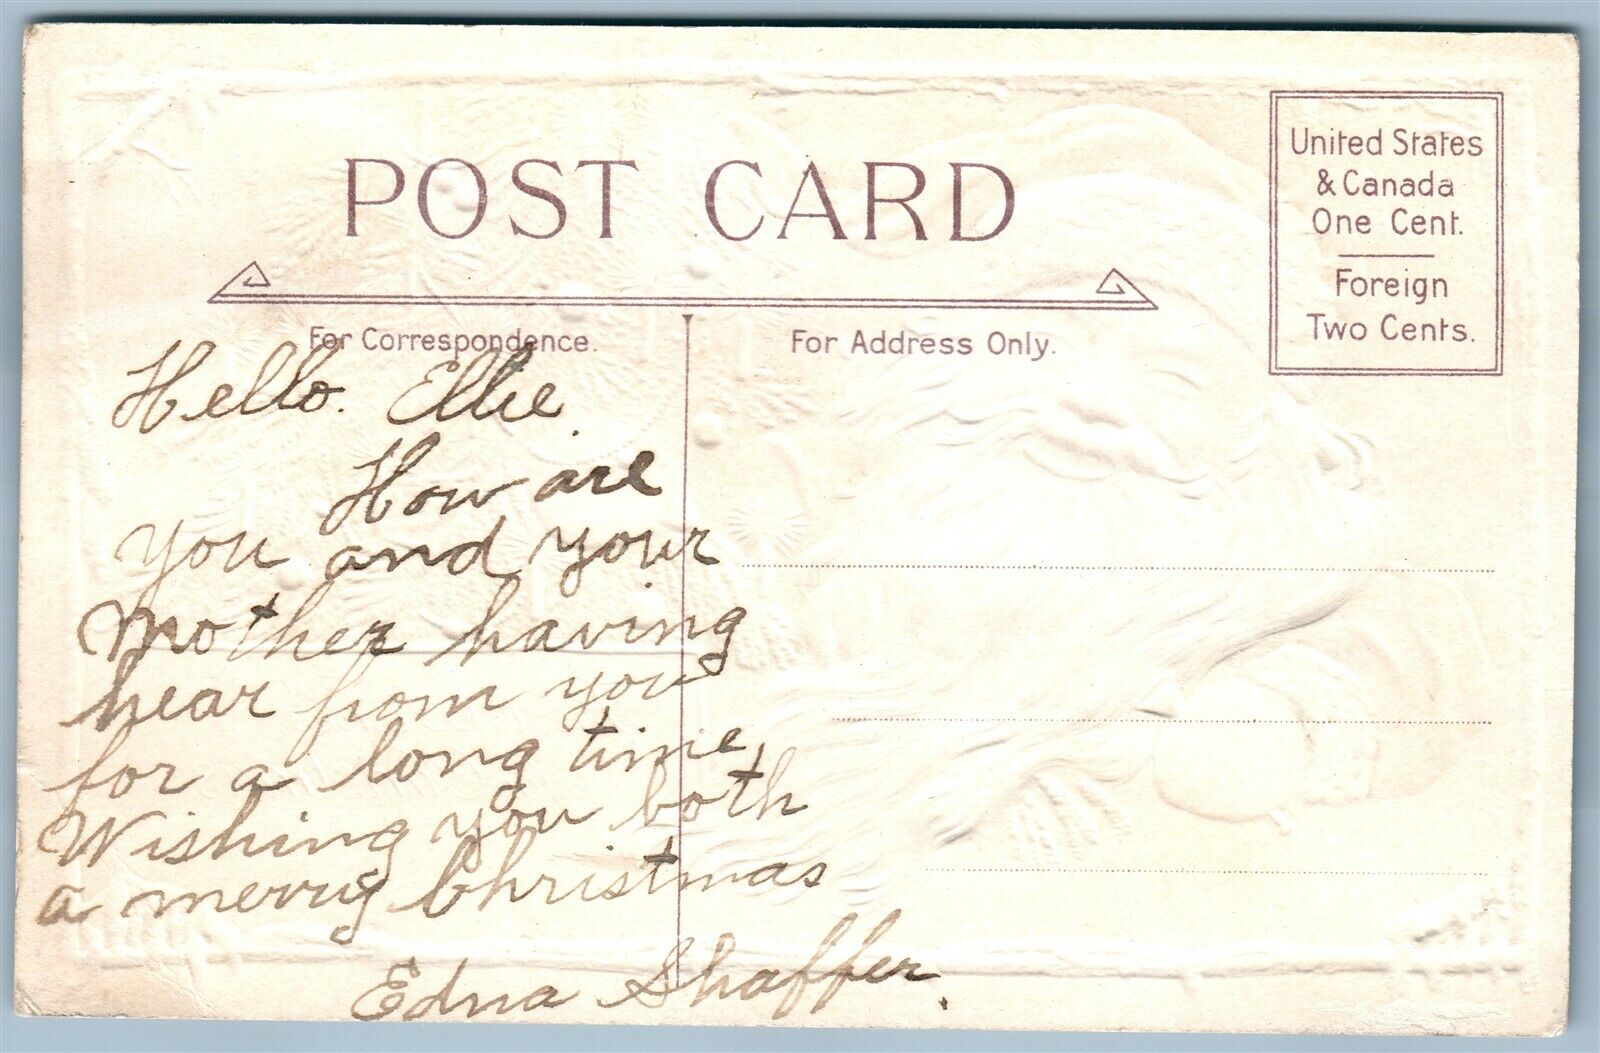 POST CARD
United States
& Canada
One Cent.
Foreign
Two Cents.
For Correspondence.
For Address Only.
Hello. Ellie.
How are
you and your
Mother having
hear from you
for a long time,
Wishing you both
a merry Christmas
Edna Shaffer.